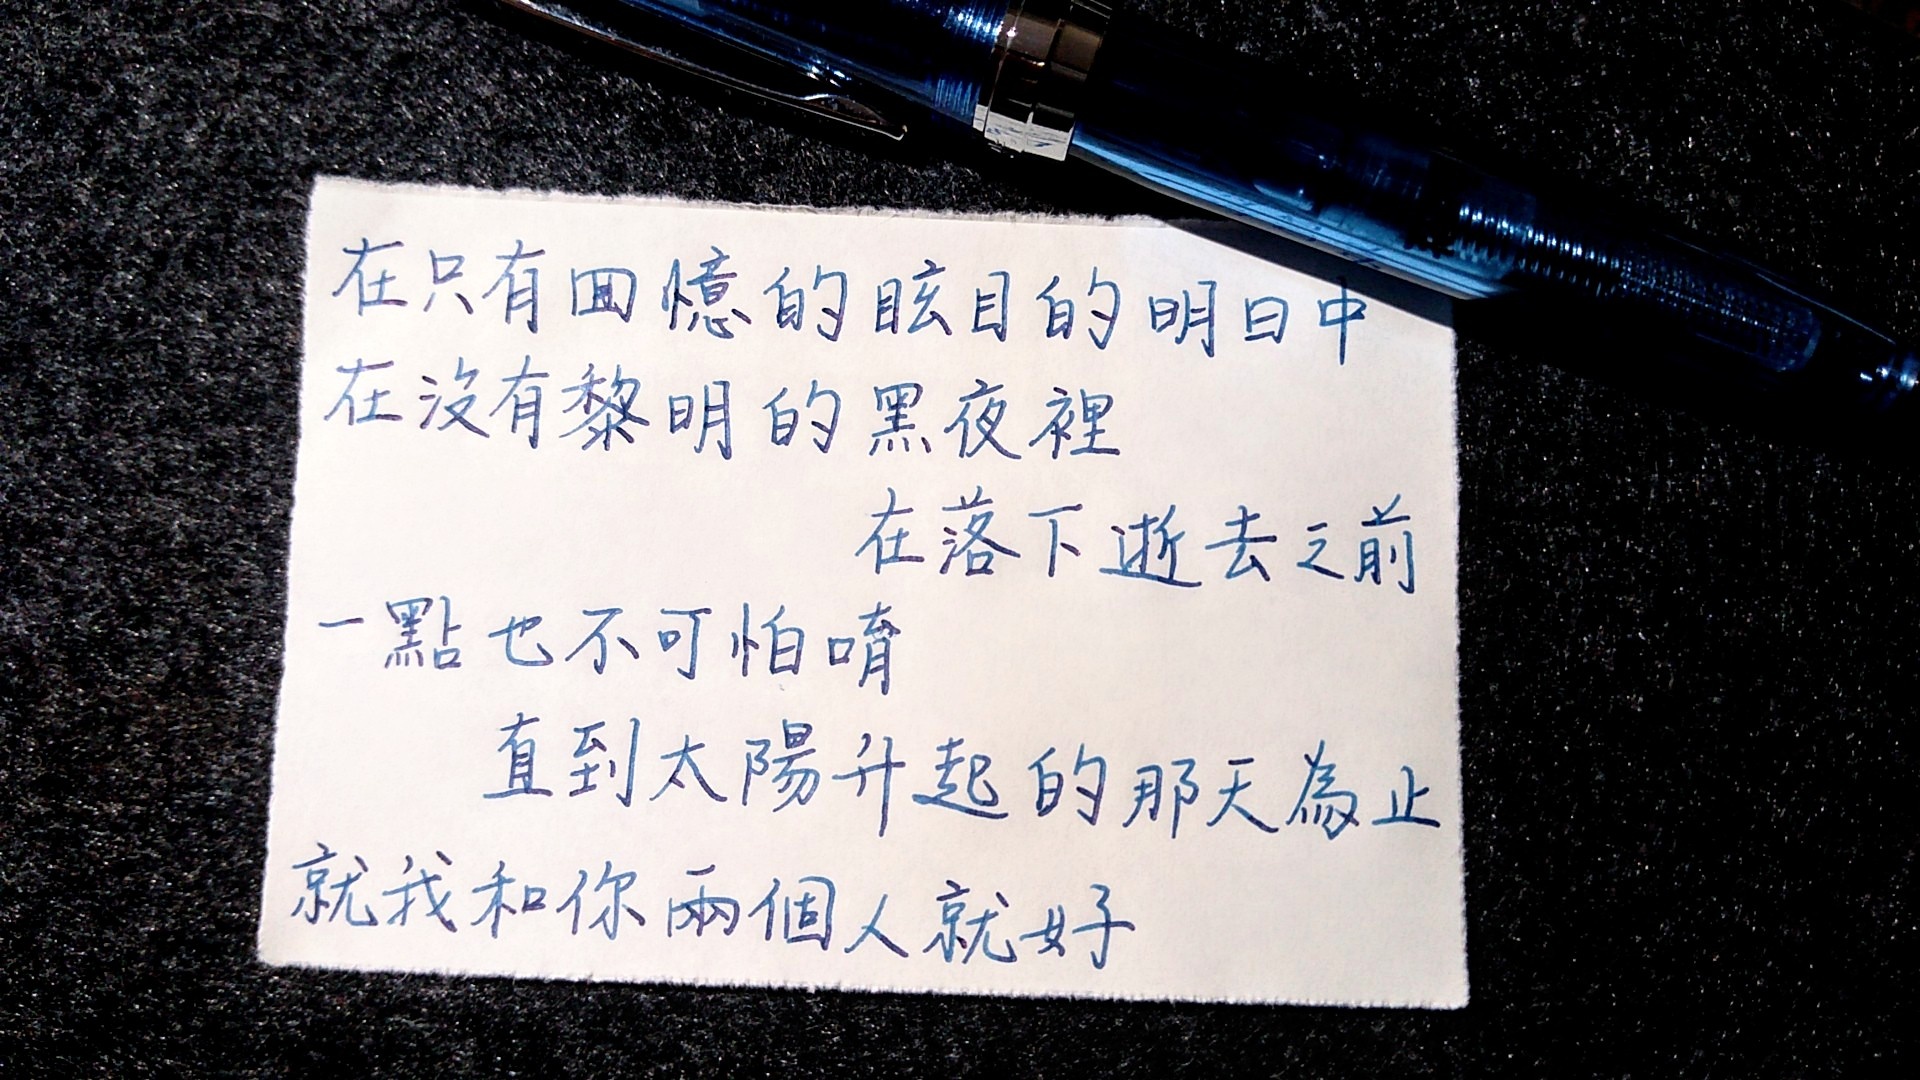 在只有回憶的眩目的明日中
在沒有黎明的黑夜裡
在落下逝去之前
一點也不可怕唷
直到太陽升起的那天為止
就我和你兩個人就好